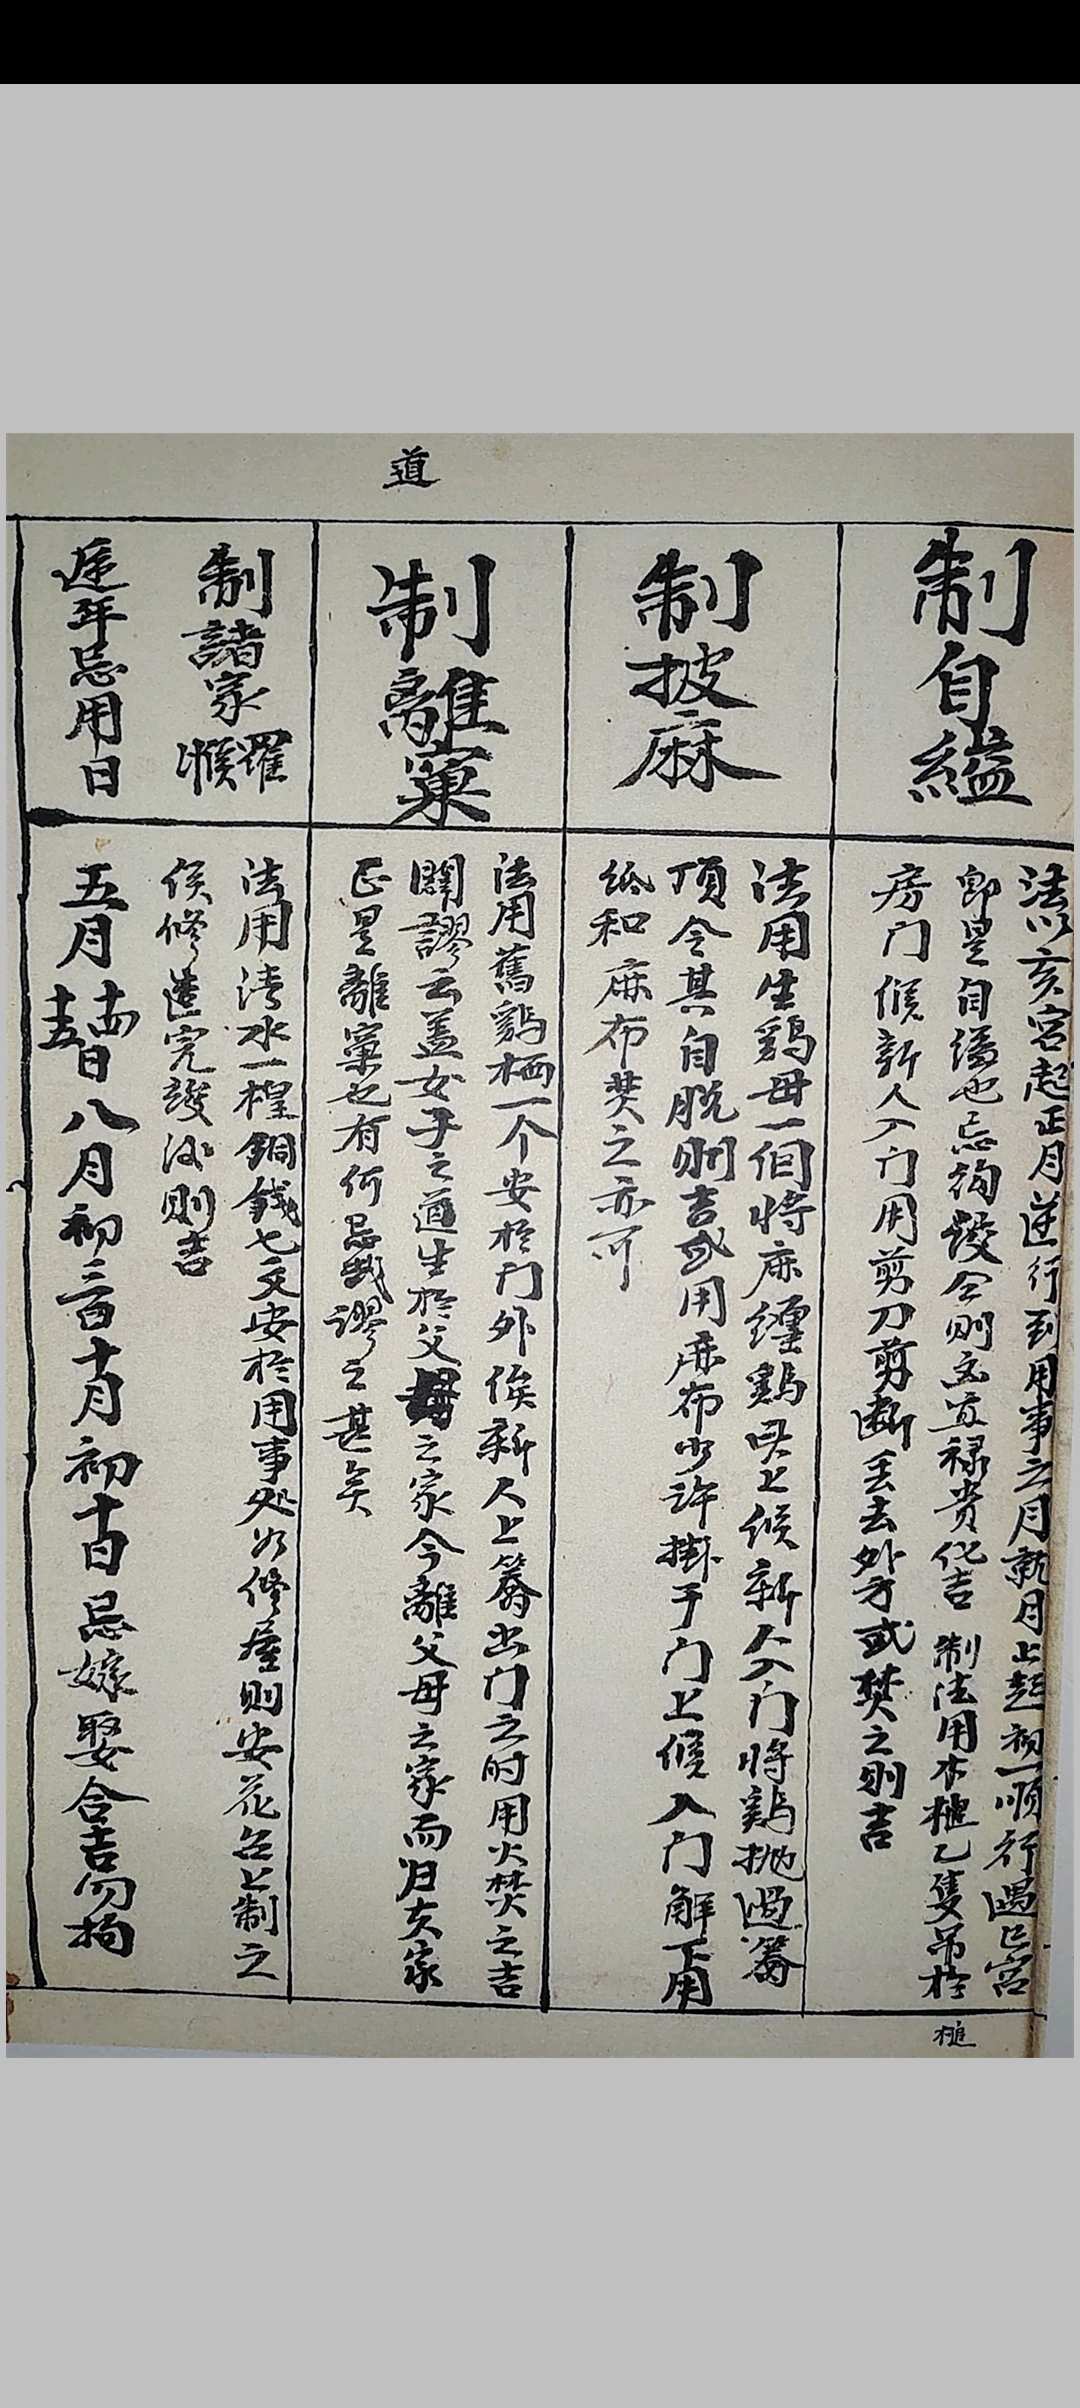 道
制自縊
法以亥宮起正月逆行到用事之月就月上起初一順行遇巳宮
即是自縊也忌絢設令則玄宜禄贵化吉 制法用木槌乙隻吊於
房门候新人入门用剪刀剪断丢去外方或焚之则吉
槌
制披麻
法用生鷄母一個将麻纏鷄身上候新人入门将鷄抛過簥
顶令其自脱则吉或用麻布少许掛于门上候入门解下用
纸和麻布焚之亦可
制離窠
法用舊鷄栖一个安於门外俟新人上簥出门之时用火焚之吉
闢謬云盖女子之道生於父母之家今離父母之家而归夫家
正是離窠也有何忌哉謬之甚矣
制諸家羅㬋
法用清水一桯銅錢七文安於用事处如修屋则安花台上制之
俟修造完護後则吉
逐年忌用日
五月十四十五日八月初三日十月初十日忌嫁娶合吉勿拘